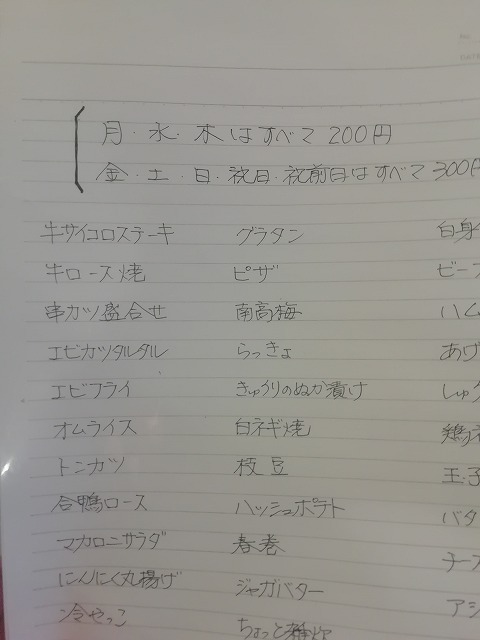 月・水・木はすべて200円
金・土・日・祝日・祝前日はすべて300円
牛サイコロステーキ グラタン 白身
牛ロース焼 ピザ ビーフ
串カツ盛合せ 南高梅 ハム
エビカツタルタル らっきょ あげ
エビフライ きゅうりのぬか漬け しゅう
オムライス 白ネギ焼 鶏
トンカツ 枝豆 玉子
合鴨ロース ハッシュポテト バタ
マカロニサラダ 春巻 チー
にんにく丸揚げ ジャガバター アジ
冷やっこ ちょっと雑炊